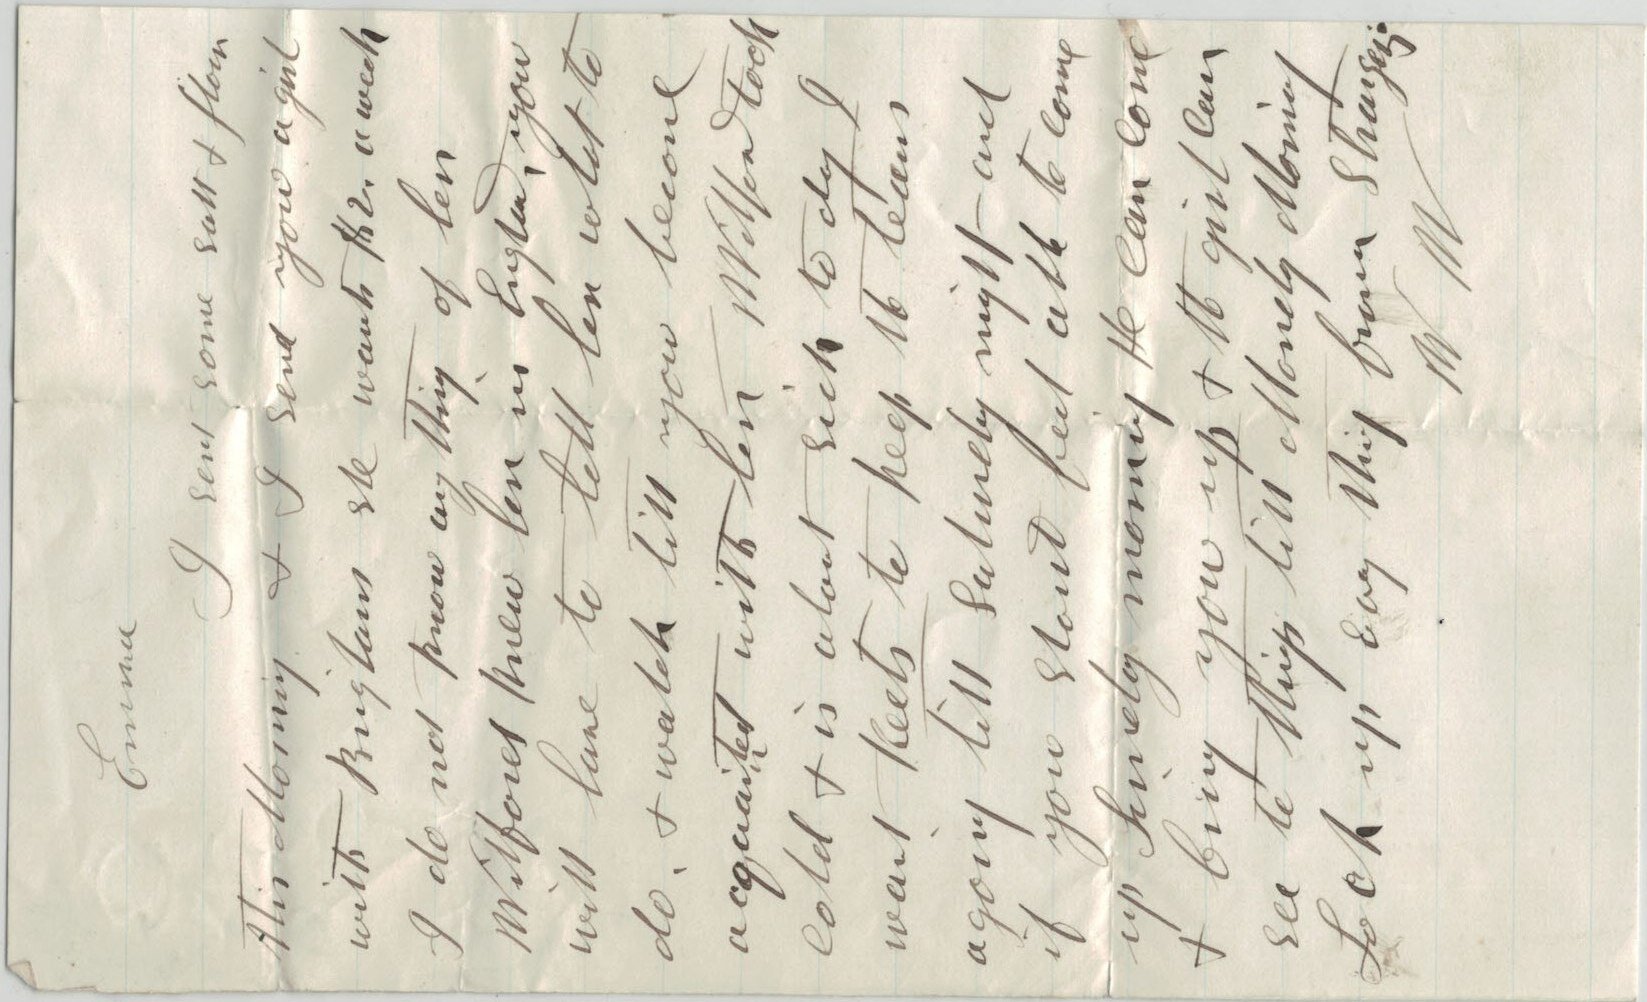 Emma
I sent some salt & flour
this Morning & I send you a girl
with Brigham she wants $2. a week
I do not know any thing of her
Wilford knew her in England, you
will have to tell her what to
do. & watch till you become
acquainted with her Wilford took
cold & is about sick to day I
want to keep the teams
agoing till Saturday night and
if you should feel able to come
up Sunday morning He can come
& bring you up & the girl can
see to things till Monday Morning
Lock up evry thing from Strangers
W W